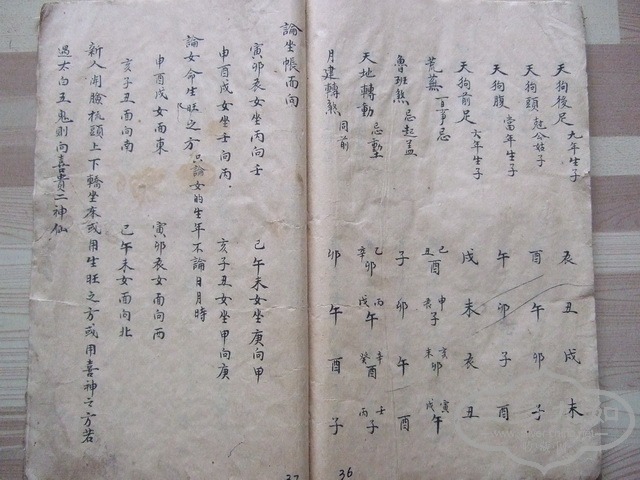 天狗後足 九年生子 亥 丑 戌 未
天狗頭 尅公始子 酉 午 卯 子
天狗腹 當年生子 午 卯 子 酉
天狗前足 六年生子 戌 未 辰 丑
荒蕪 百事忌 巳酉丑 申子辰 亥卯未 寅午戌
魯班煞 忌起盖 子 卯 午 酉
天地轉動 忌動土 乙卯辛卯 丙午戊午 辛酉癸酉 壬子丙子
月建轉煞 同前 卯 午 酉 子
36
論坐帳面向
寅卯辰女坐丙向壬 巳午未女坐庚向甲
申酉戌女坐壬向丙 亥子丑女坐甲向庚
論女命生旺之方 只論女的生年不論日月時
申酉戌女面東 寅卯辰女南向丙
亥子丑面向南 巳午未女面向北
新人開臉梳頭上下轎坐床或用生旺之方或用喜神之方若
遇太白五鬼則向喜貴二神仙
37